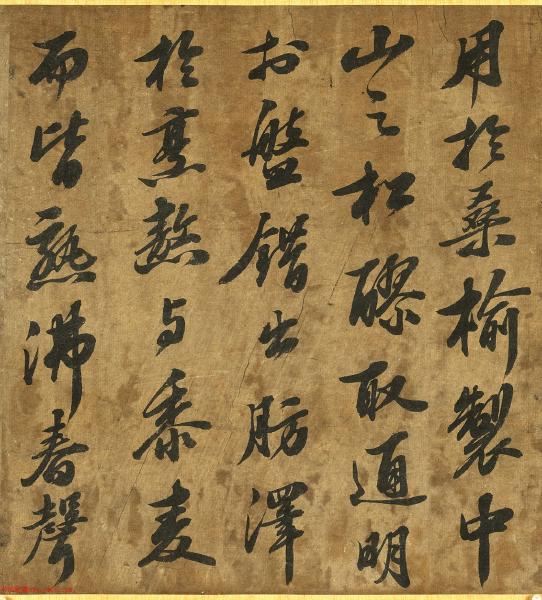 用於桑榆製中
山之松醪取通明
於盤錯出肪澤
於烹熬与黍麦
而皆熟沸舂聲